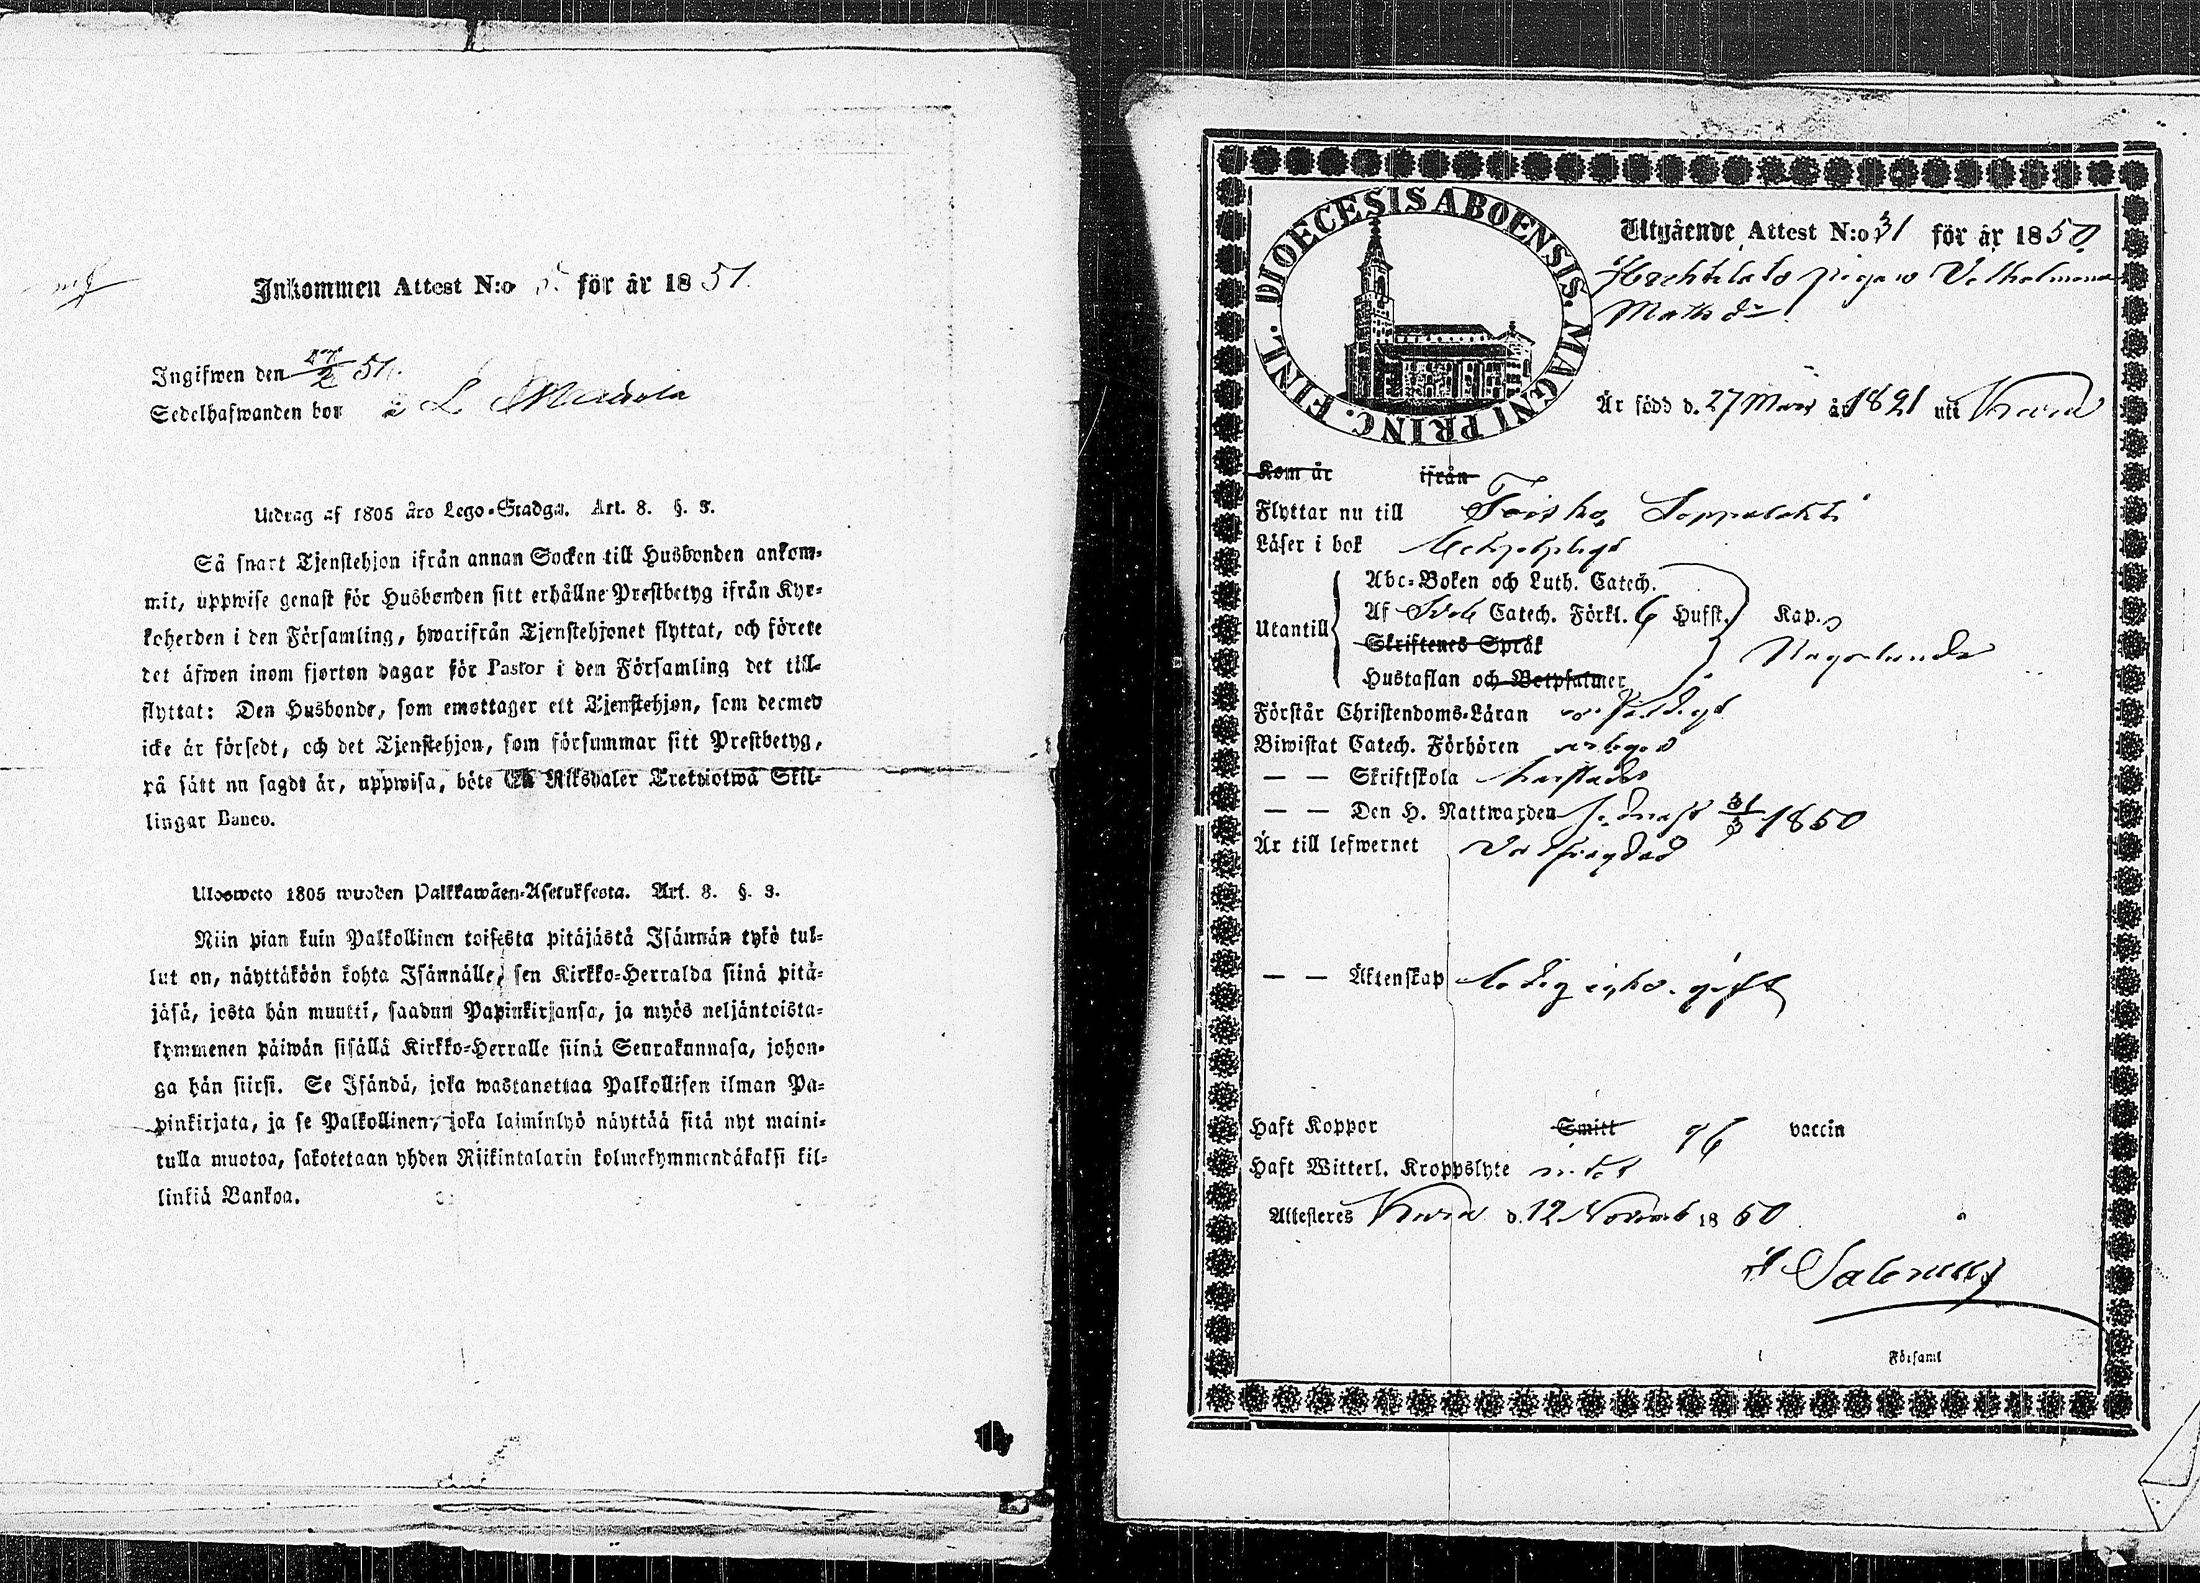 Inkommen Attest N:o 5. för år 1851.
Ingifwen den 17/2 51.
Sedelhafwanden bor i L
Utdrag af 1805 års Lego-Stadga. Art. 8. §. 3.
Så snart Tjenstehjon ifrån annan Socken till Husbonden ankom-
mit, uppwise genast för Husbonden sitt erhållne Prestbetyg ifrån Kyr-
koherden i den Församling, hwarifrån Tjenstehjonet flyttat, och förete
det äfwen inom fjorton dagar för Pastor i den Församling det till-
flyttat: Den Husbonde, som emottager ett Tjenstehjon, som dermed
icke är försedt, och det Tjenstehjon, som försummar sitt Prestbetyg,
på sätt nu sagdt är, uppwisa, böte Ett Riksdaler Trettiotwå Skil-
lingar Banco.
Ulosweto 1805 wuoden Palkkawäen-Asetuksesta. Art. 8. §. 3.
Niin pian kuin Palkollinen toisesta pitäjästä Isännän tykö tul-
lut on, näyttäköön kohta Isännälle, sen Kirkko-Herralda siinä pitä-
jäsä, josta hän muutti, saadun Papinkirjansa, ja myös neljäntoista-
kymmenen päiwän sisällä Kirkko-Herralle siinä Seurakunnasa, johon-
ga hän siirsi. Se Isändä, joka wastanottaa Palkollisen ilman Pa-
pinkirjata, ja se Palkollinen, joka laiminlyö näyttää sitä nyt maini-
tulla muotoa, sakotetaan yhden Riikintalarin kolmekymmendäkaksi kil-
linkiä Bankoa.
DIOECESIS ABOENSIS. MAGNI PRINC. FINL.
Utgående Attest N:o 31 för år 1850.
pigan Vilhelmina
Matts dr
Är född d. 27 Mars år 1821 uti
Kom år ifrån
Flyttar nu till Teisko,
Läser i bok
Abc-Boken och Luth. Catech.
Utantill Af Catech. Förkl. 6 Hufst. Kap.
Skriftenes Språk
Hustaflan och Botpsalmer
Någorlunda
Förstår Christendoms-Läran
Biwistat Catech. Förhören
— — Skriftskola
— — Den H. Nattwarden sednast 31/3 1850
Är till lefwernet Välfrägdad
— — Äktenskap ledig
Haft Koppor Smitt vaccin
Haft Witterl. Kroppslyte intet
Attesteres d. 12 Novemb 1850
Församl